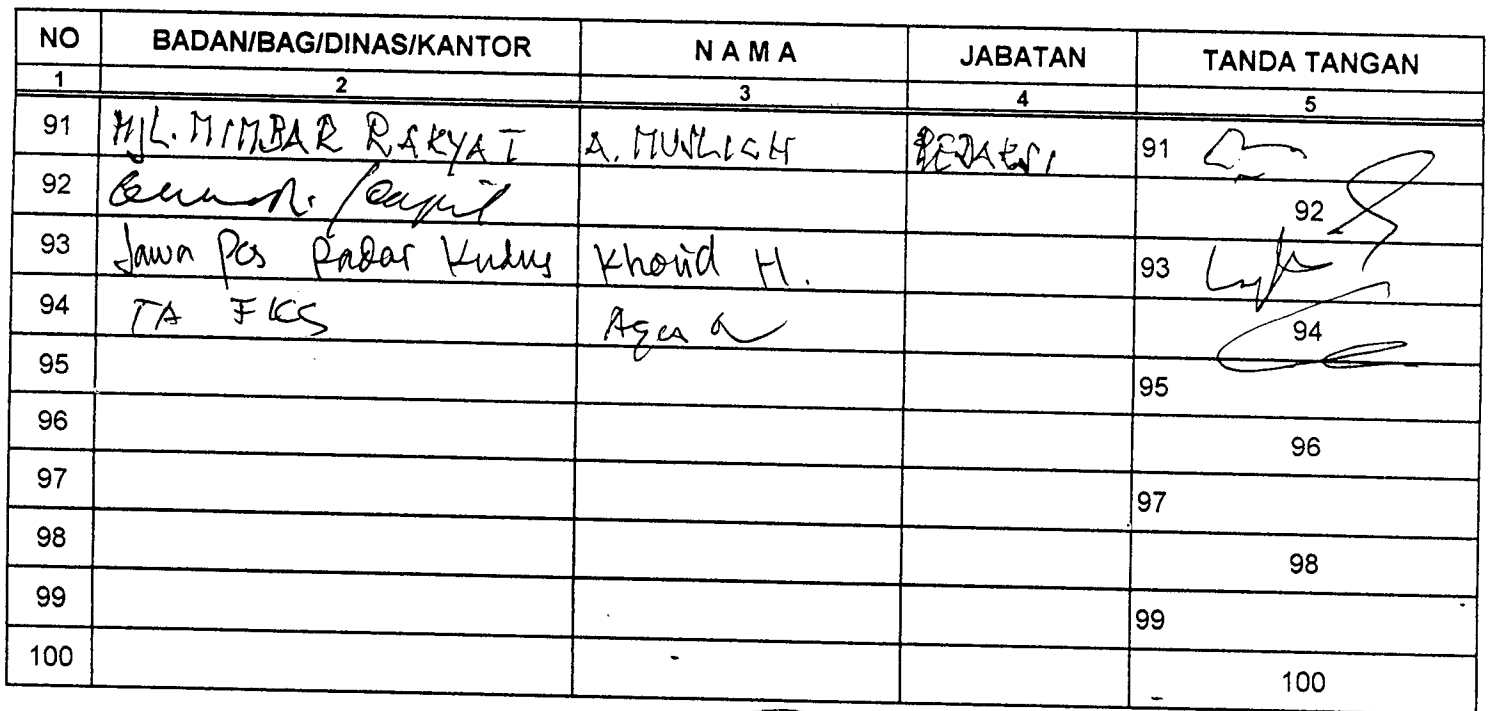 NO BADAN/BAG/DINAS/KANTOR N A M A JABATAN TANDA TANGAN
1 2 3 4 5
91 MJL. MIMBAR RAKYAT A. MUSLICH REDAKSI 91
92 92
93 Jawa Pos Radar Kudus Kholid H. 93
94 TA FKS 94
95 95
96 96
97 97
98 98
99 99
100 100